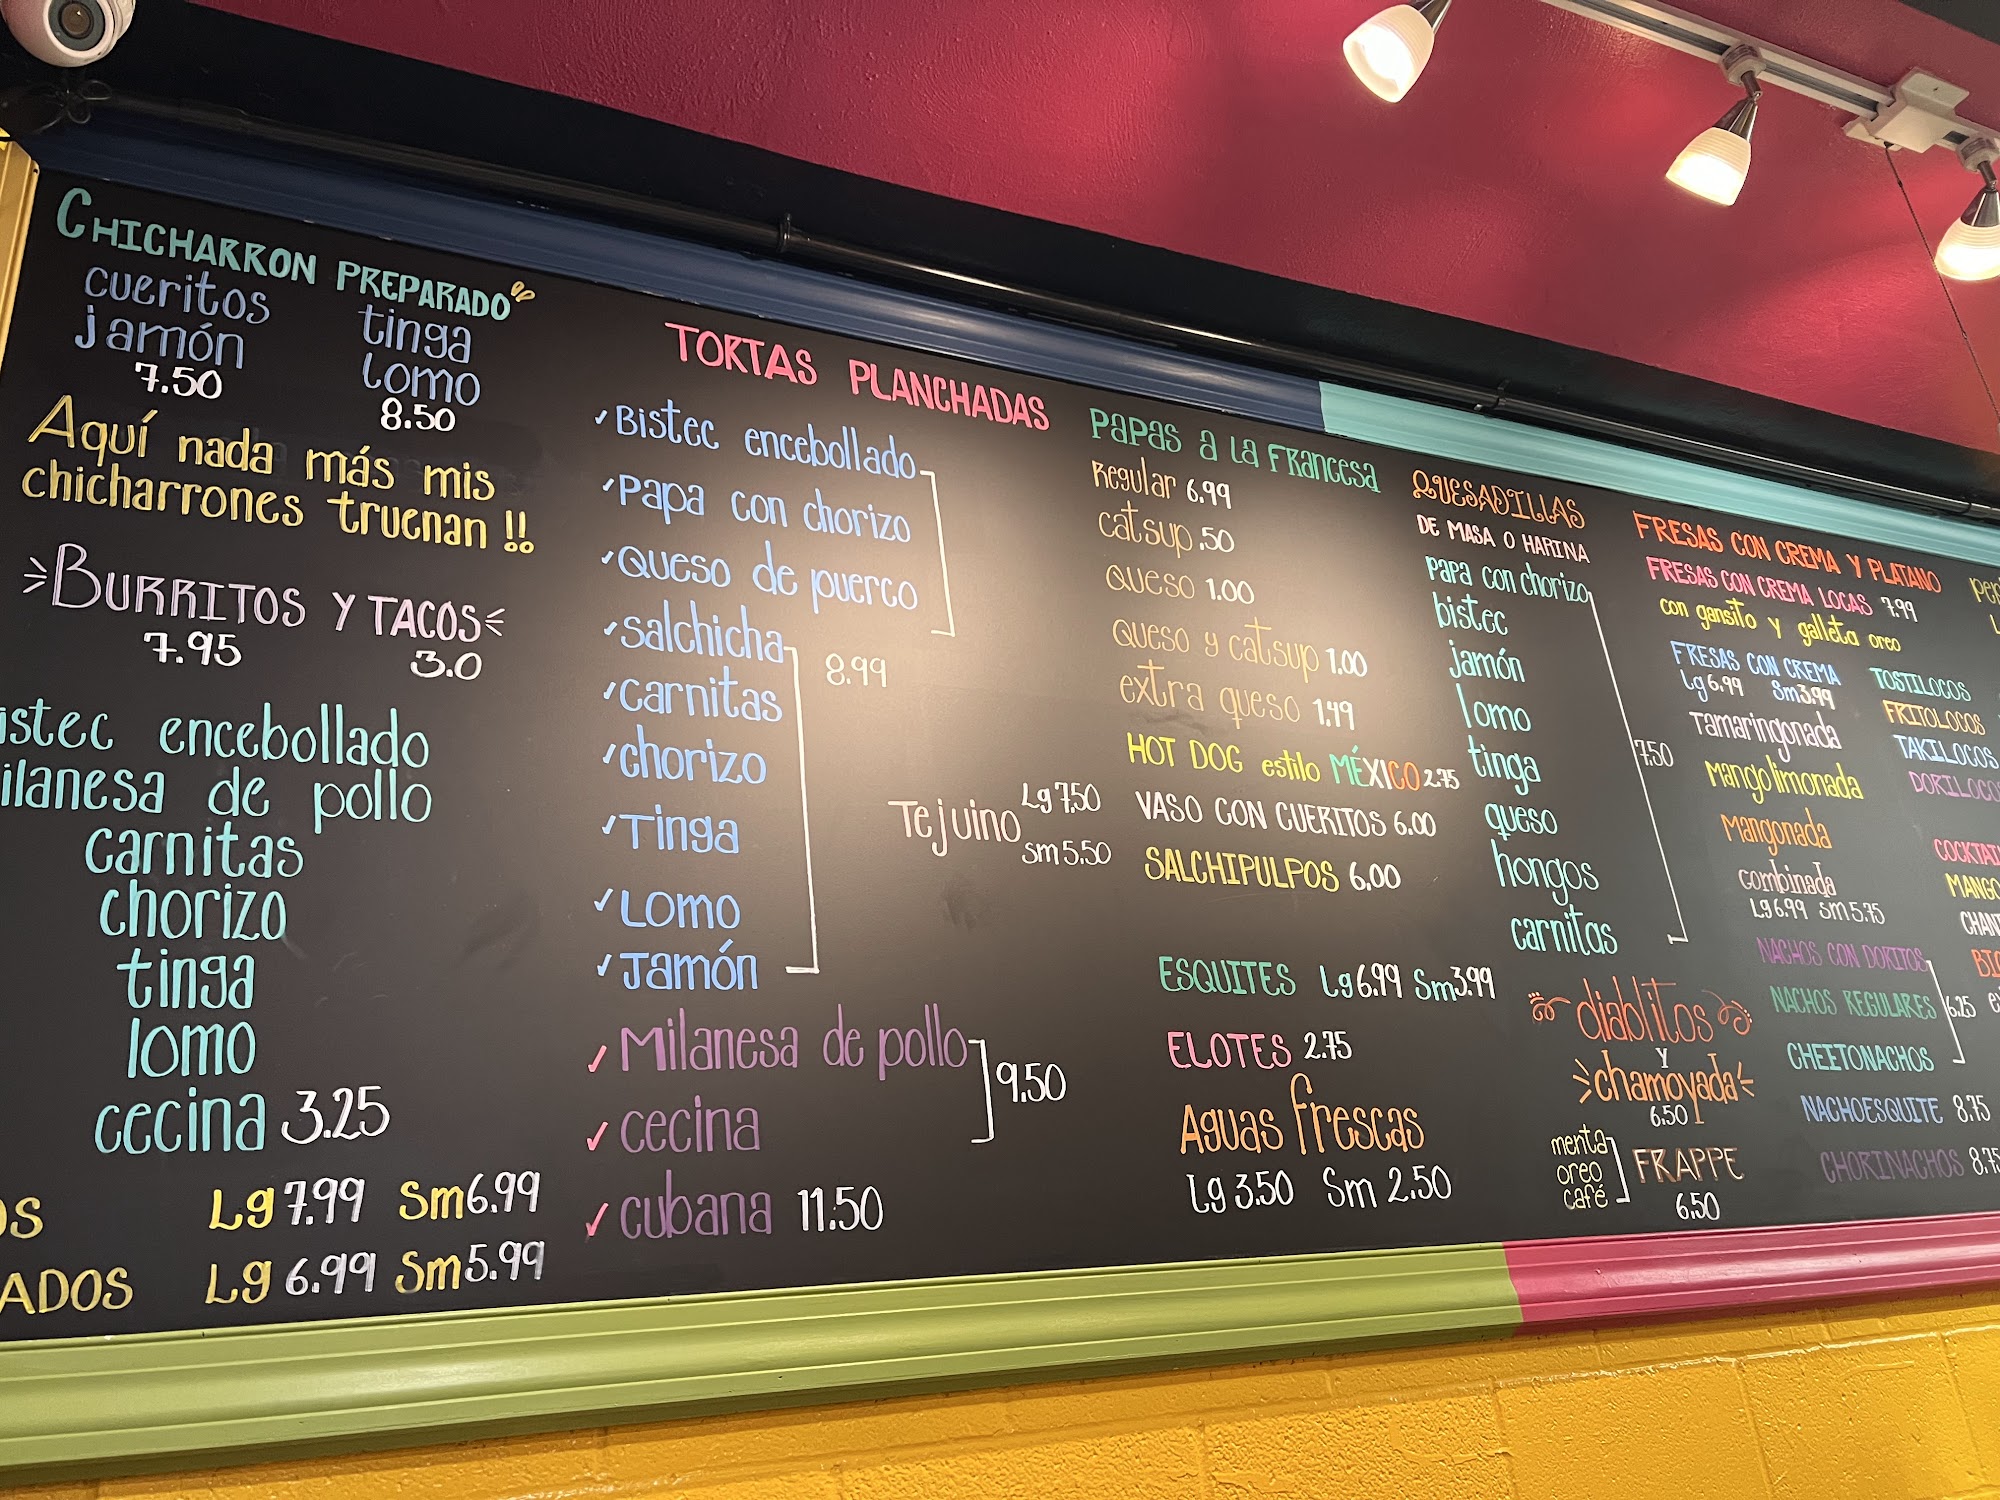 CHICHARRON PREPARADO
cueritos tinga
jamón lomo
7.50 8.50
Aquí nada más mis
chicharrones truenan !!
BURRITOS Y TACOS
7.95 3.0
encebollado
de pollo
carnitas
chorizo
tinga
lomo
cecina 3.25
Lg 7.99 Sm 6.99
Lg 6.99 Sm 5.99
TORTAS PLANCHADAS
✓Bistec encebollado
✓Papa con chorizo
✓Queso de puerco
✓salchicha
8.99
✓carnitas
✓chorizo
✓Tinga
✓Lomo
✓Jamón
✓Milanesa de pollo
9.50
✓cecina
✓cubana 11.50
Tejuino Lg 7.50
Sm 5.50
PAPAS A LA FRANCESA
Regular 6.99
catsup .50
Queso 1.00
Queso y catsup 1.00
extra queso 1.49
HOT DOG estilo MÉXICO 2.75
VASO CON CUERITOS 6.00
SALCHIPULPOS 6.00
ESQUITES Lg 6.99 Sm 3.99
ELOTES 2.75
Aguas frescas
Lg 3.50 Sm 2.50
QUESADILLAS
DE MASA O HARINA
papa con chorizo
bistec
jamón
lomo
tinga
7.50
queso
hongos
carnitas
diablitos
y
chamoyada
6.50
menta
oreo
café
FRAPPE
6.50
FRESAS CON CREMA Y PLATANO
FRESAS CON CREMA LOCAS 7.99
con gansito y galleta oreo
FRESAS CON CREMA
Lg 6.99 Sm 3.99
Tamaringonada
Mangolimonada
Mangonada
combinada
Lg 6.99 Sm 5.75
NACHOS CON DORITOS
NACHOS REGULARES 6.25
CHEETONACHOS
NACHOESQUITE 8.75
CHORINACHOS
TOSTILOCOS
FRITOLOCOS
TAKILOCOS